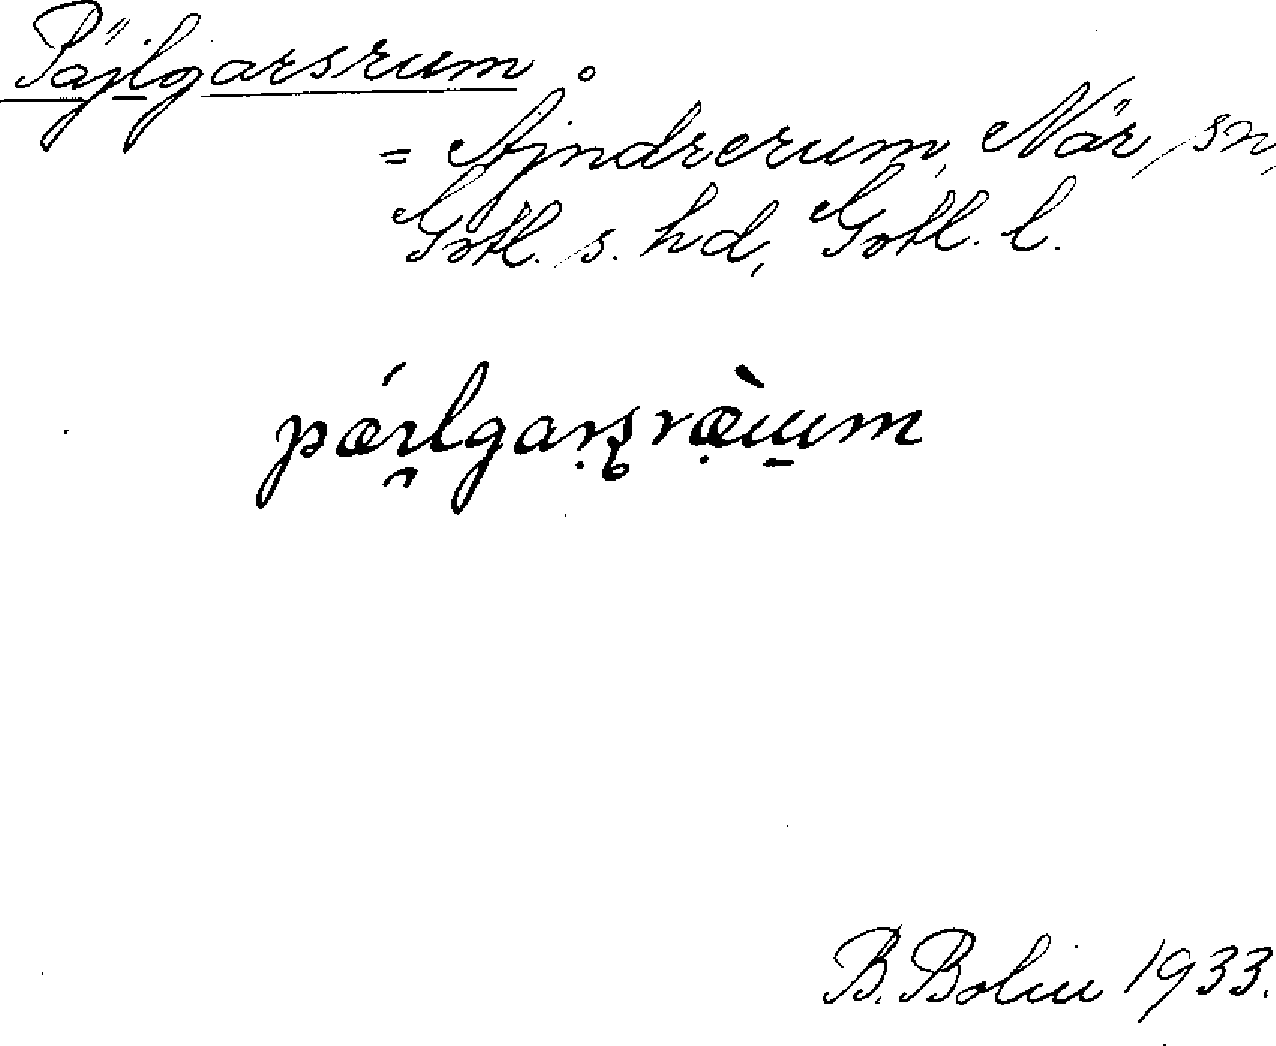 Päjlgarsrum.
= Ajndrerum, När, sn,
Gotl. s. hd, Gotl. l.
pǽi̯lgaṛsræ̣̀u̠m
B. Bolin 1933.